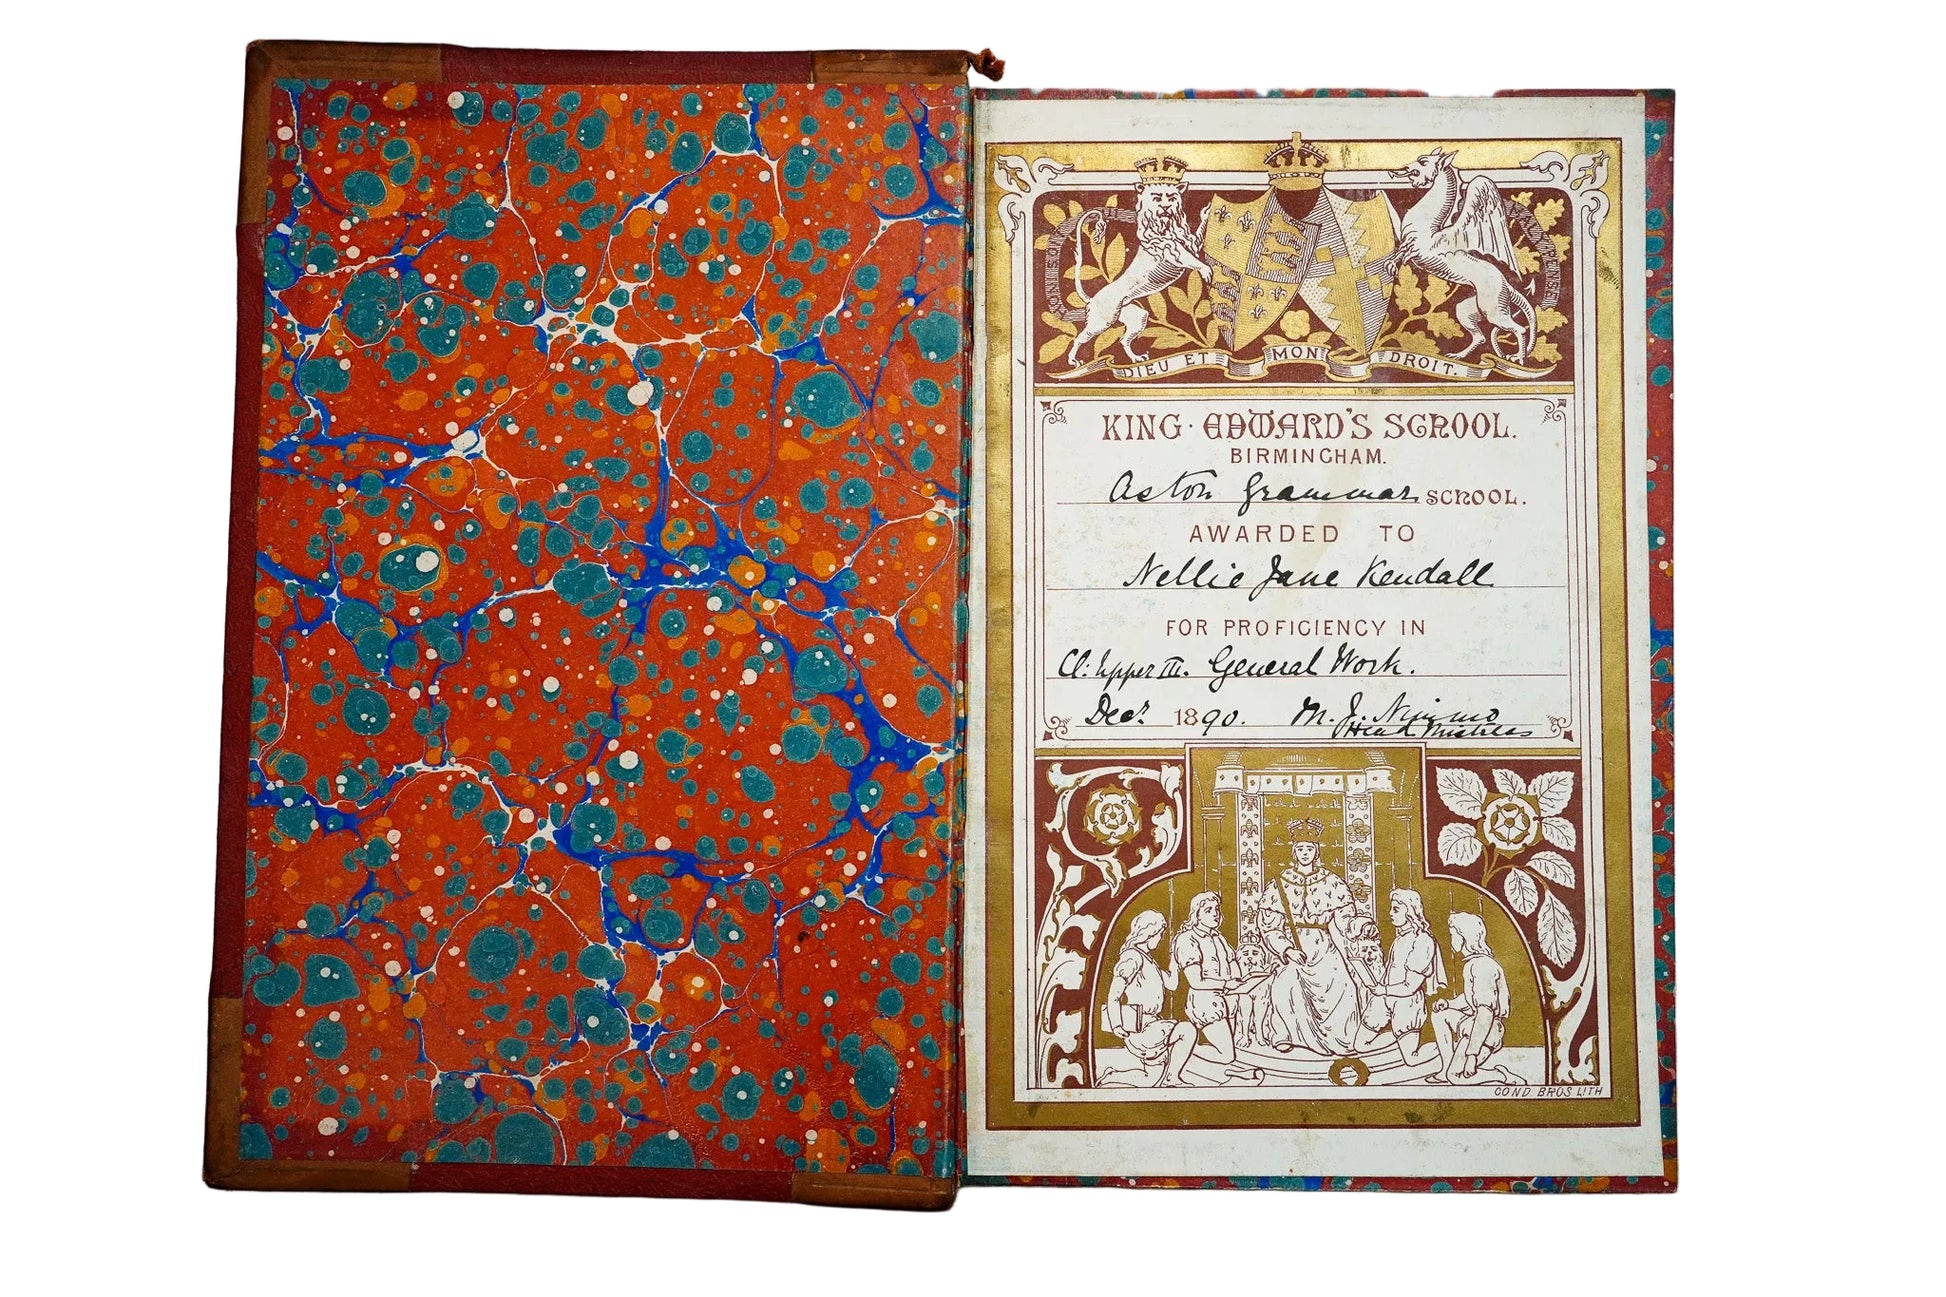 DIEU ET MON DROIT.
KING·EDWARD'S SCHOOL.
BIRMINGHAM.
Aston Grammar SCHOOL.
AWARDED TO
Nellie Jane Kendall
FOR PROFICIENCY IN
Cl: Upper III. General Work.
Decr. 1890. M. J. Nimmo
Head Mistress
COND. BROS LITH